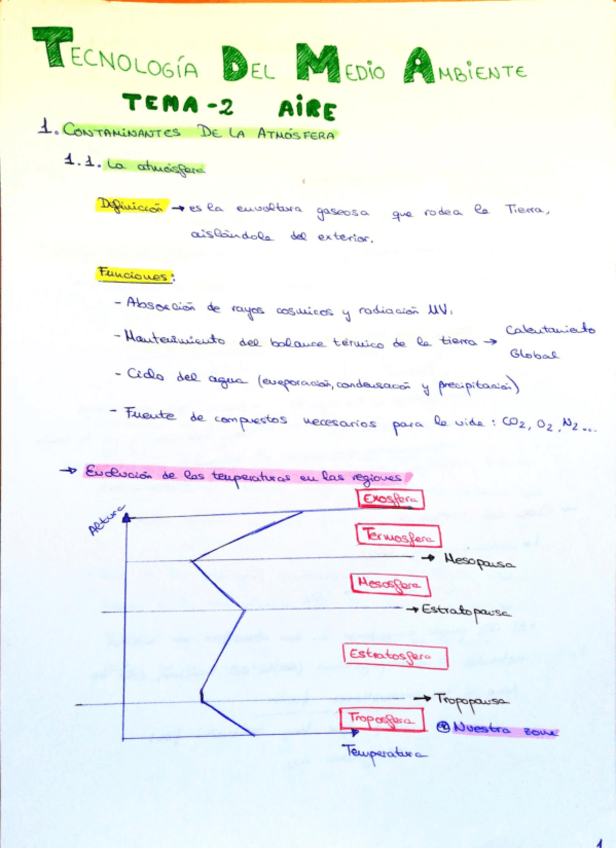 TECNOLOGÍA DEL MEDIO AMBIENTE
TEMA-2 AIRE
1. CONTAMINANTES DE LA ATMÓSFERA
1.1. La atmósfera
Definición → es la envoltura gaseosa que rodea la Tierra,
aislándola del exterior.
Funciones:
- Absorción de rayos cosmicos y radiación UV.
- Mantenimiento del balance térmico de la tierra → Calentamiento
Global
- Ciclo del agua (evaporación, condensación y precipitación)
- Fuente de compuestos necesarios para la vida : CO2, O2, N2...
→ Evolución de las temperaturas en las regiones
Altura
Exosfera
Termosfera
→ Mesopausa
Mesosfera
→ Estratopausa
Estratosfera
→ Tropopausa
Troposfera
Nuestra zona
Temperatura
1